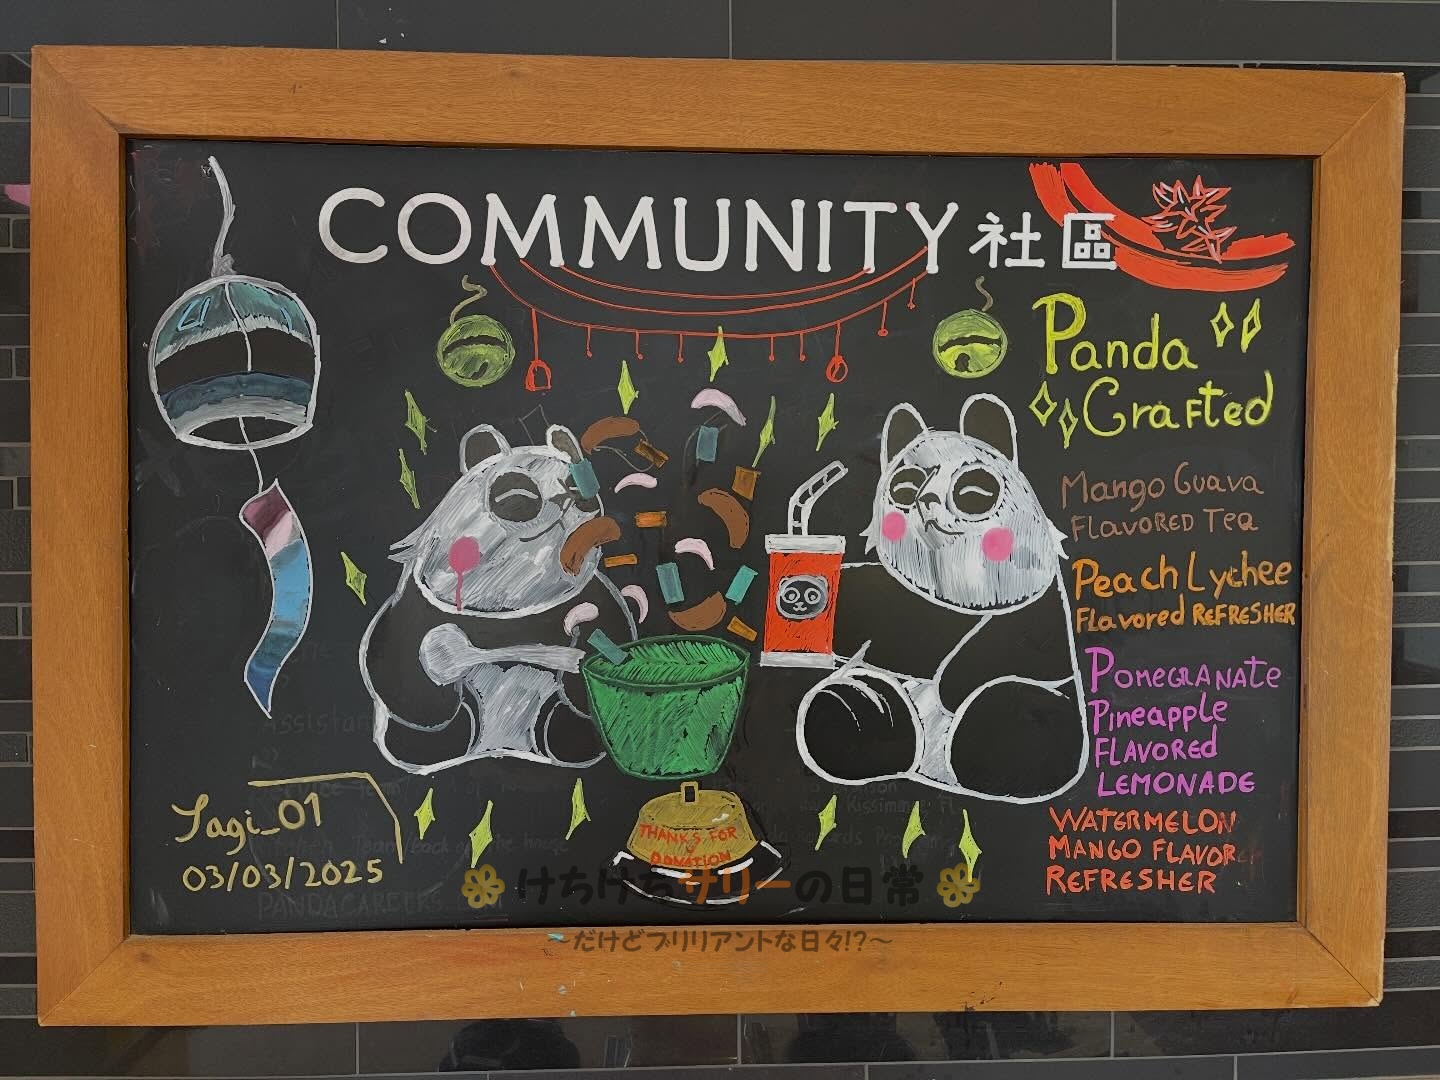 COMMUNITY 社區
Panda
Crafted
Mango Guava
FLAVORED Tea
Peach Lychee
Flavored REFRESHER
POMEGRANATE
Pineapple
FLAVORED
LEMONADE
WATERMELON
MANGO FLAVOR
REFRESHER
THANKS FOR
DONATION
Yagi_01
03/03/2025
Assistan
Kissimmee Fl
PANDACAREERS
けちけちサリーの日常
～だけどブリリアントな日々!?～